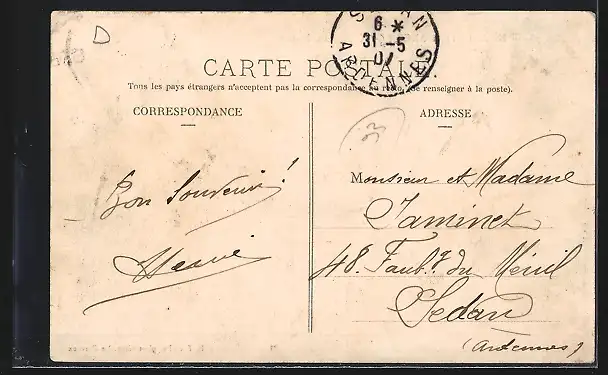 D
6 *
31 -5
07
ARDENNES
CARTE POSTALE.
Tous les pays étrangers n'acceptent pas la correspondance au recto. (Se renseigner à la poste).
CORRESPONDANCE
ADRESSE
Bon Souvenir !
Monsieur et Madame
Taminet
48. Faubg du Ménil
Sedan
(Ardennes)